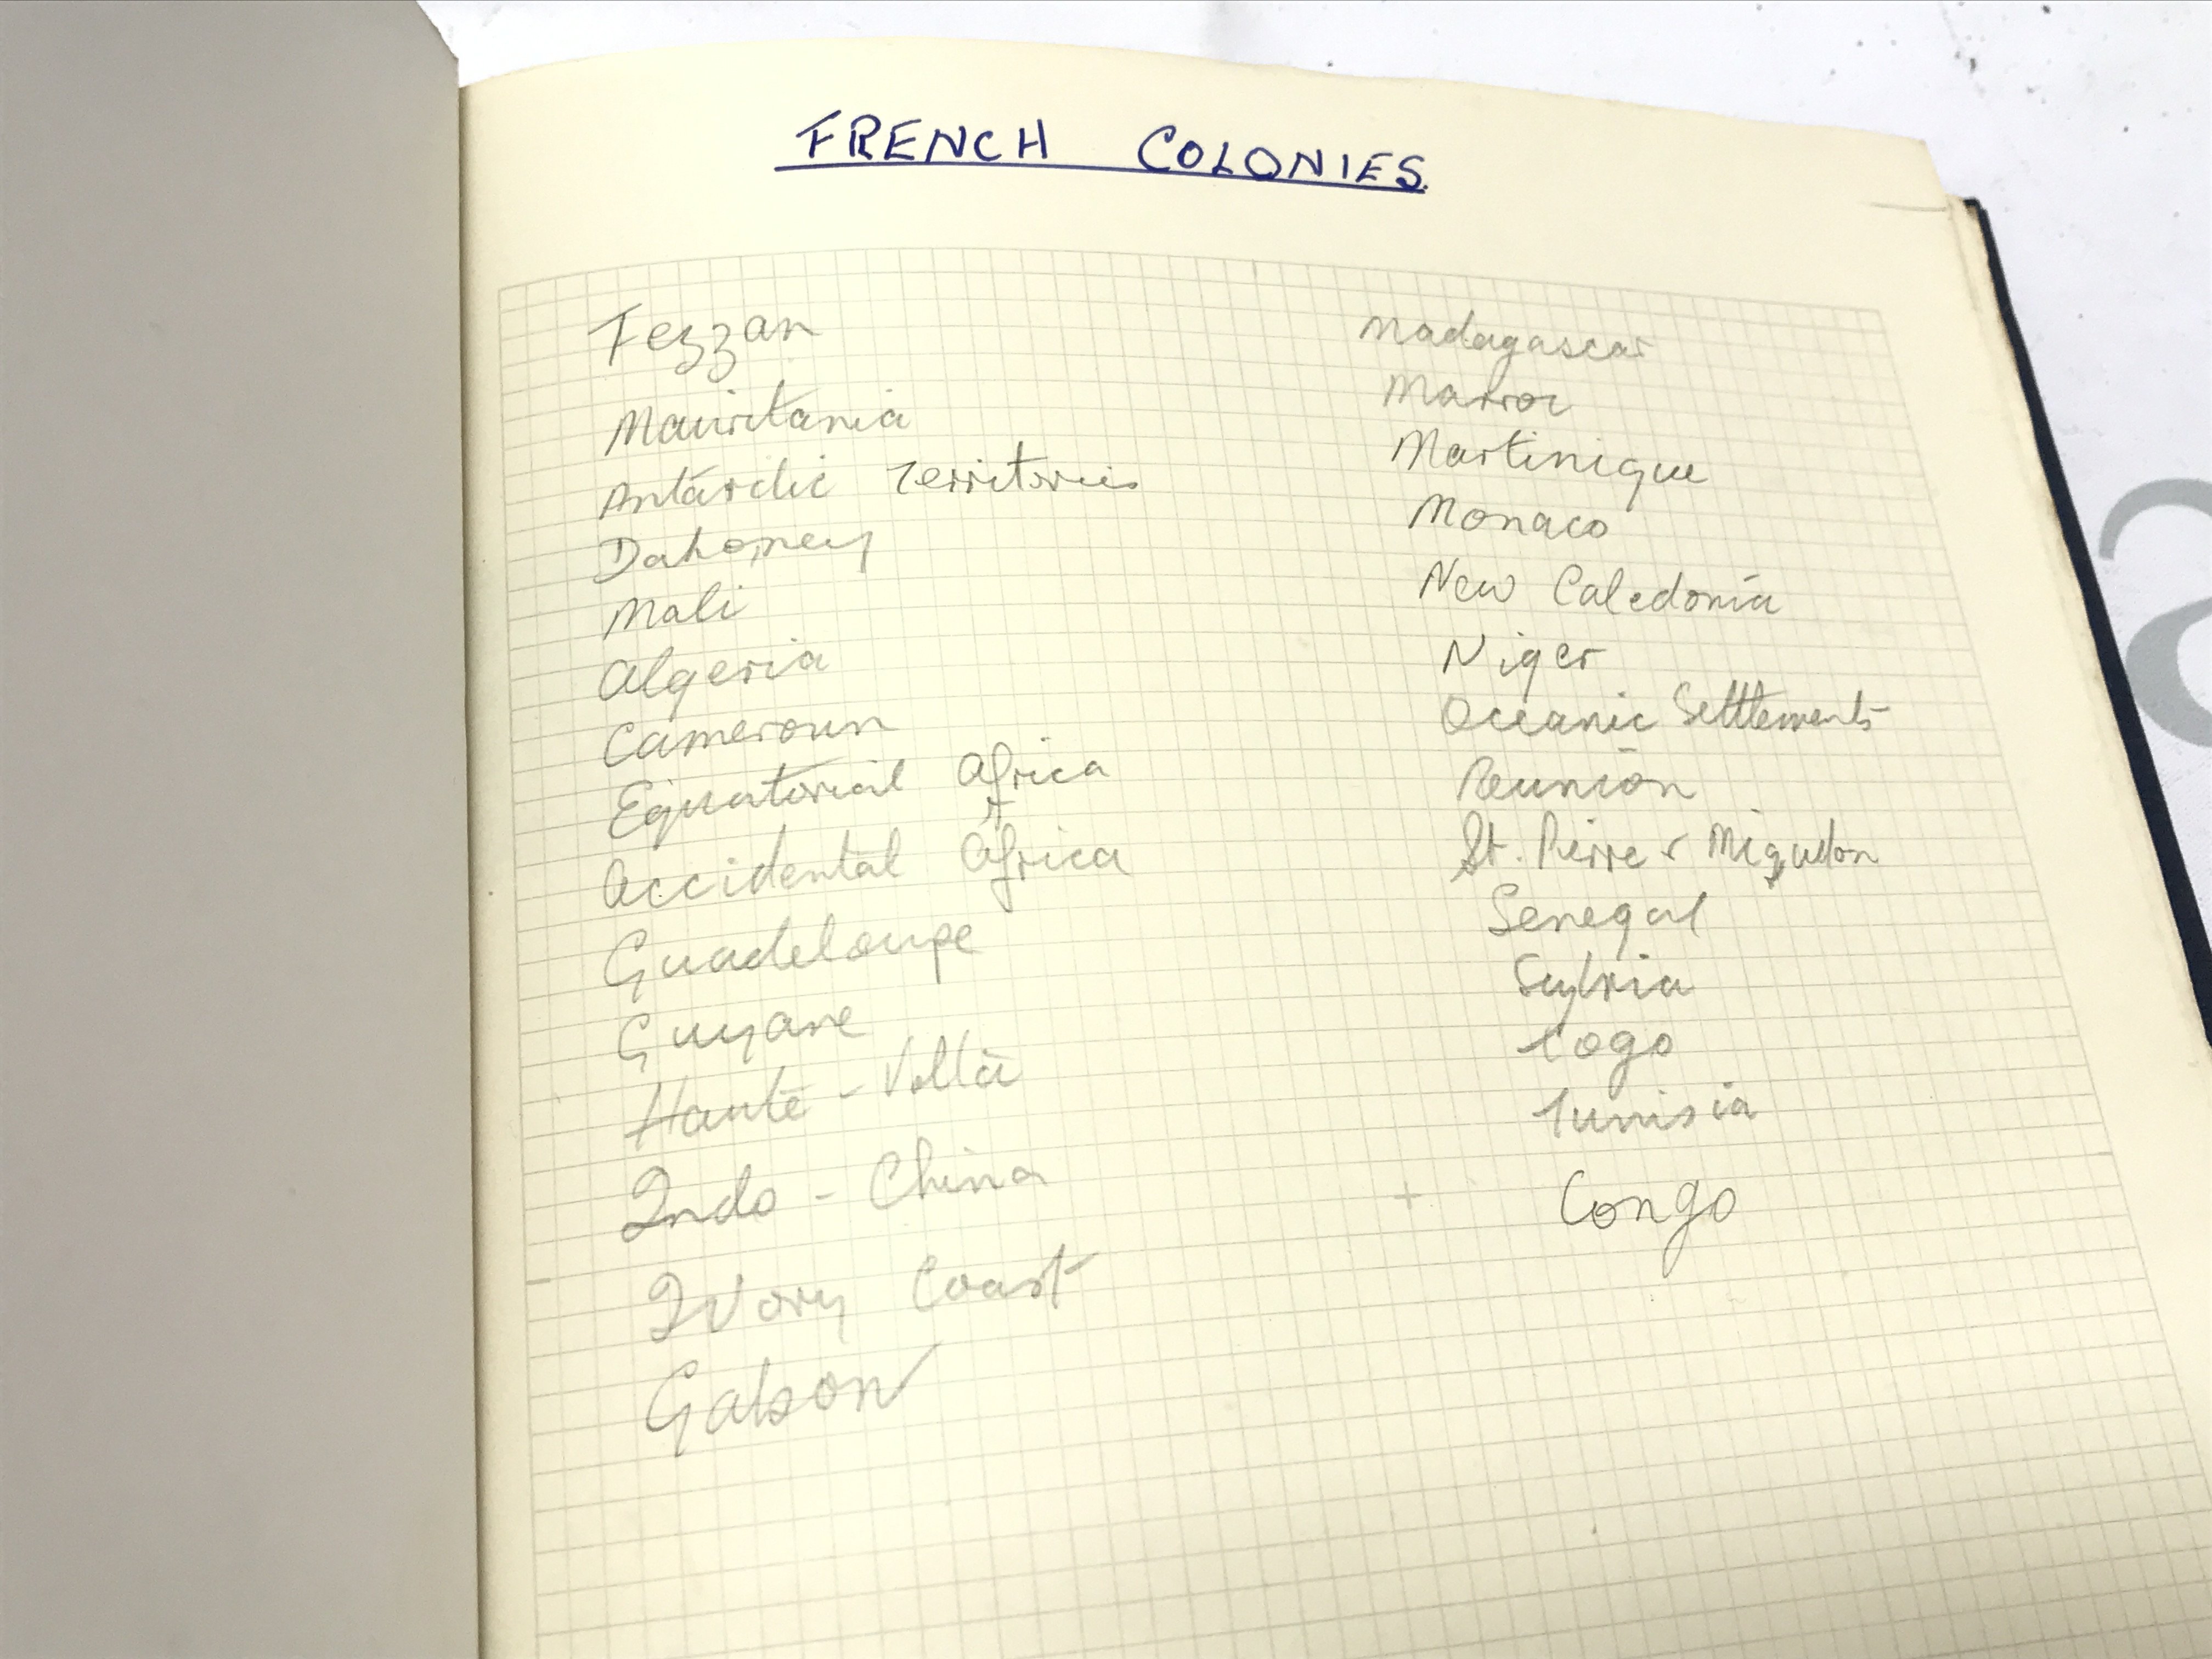 FRENCH COLONIES.
Fezzan
Mauritania
Antarctic Territories
Dahomey
Mali
Algeria
Cameroun
Equatorial Africa
Accidental Africa
Guadeloupe
Guyane
Haute-Volta
Indo-China
Ivory Coast
Gabon
Madagascar
Marroc
Martinique
Monaco
New Caledonia
Niger
Oceanic Settlements
Reunion
St. Pierre & Miquelon
Senegal
Togo
Tunisia
+ Congo
a